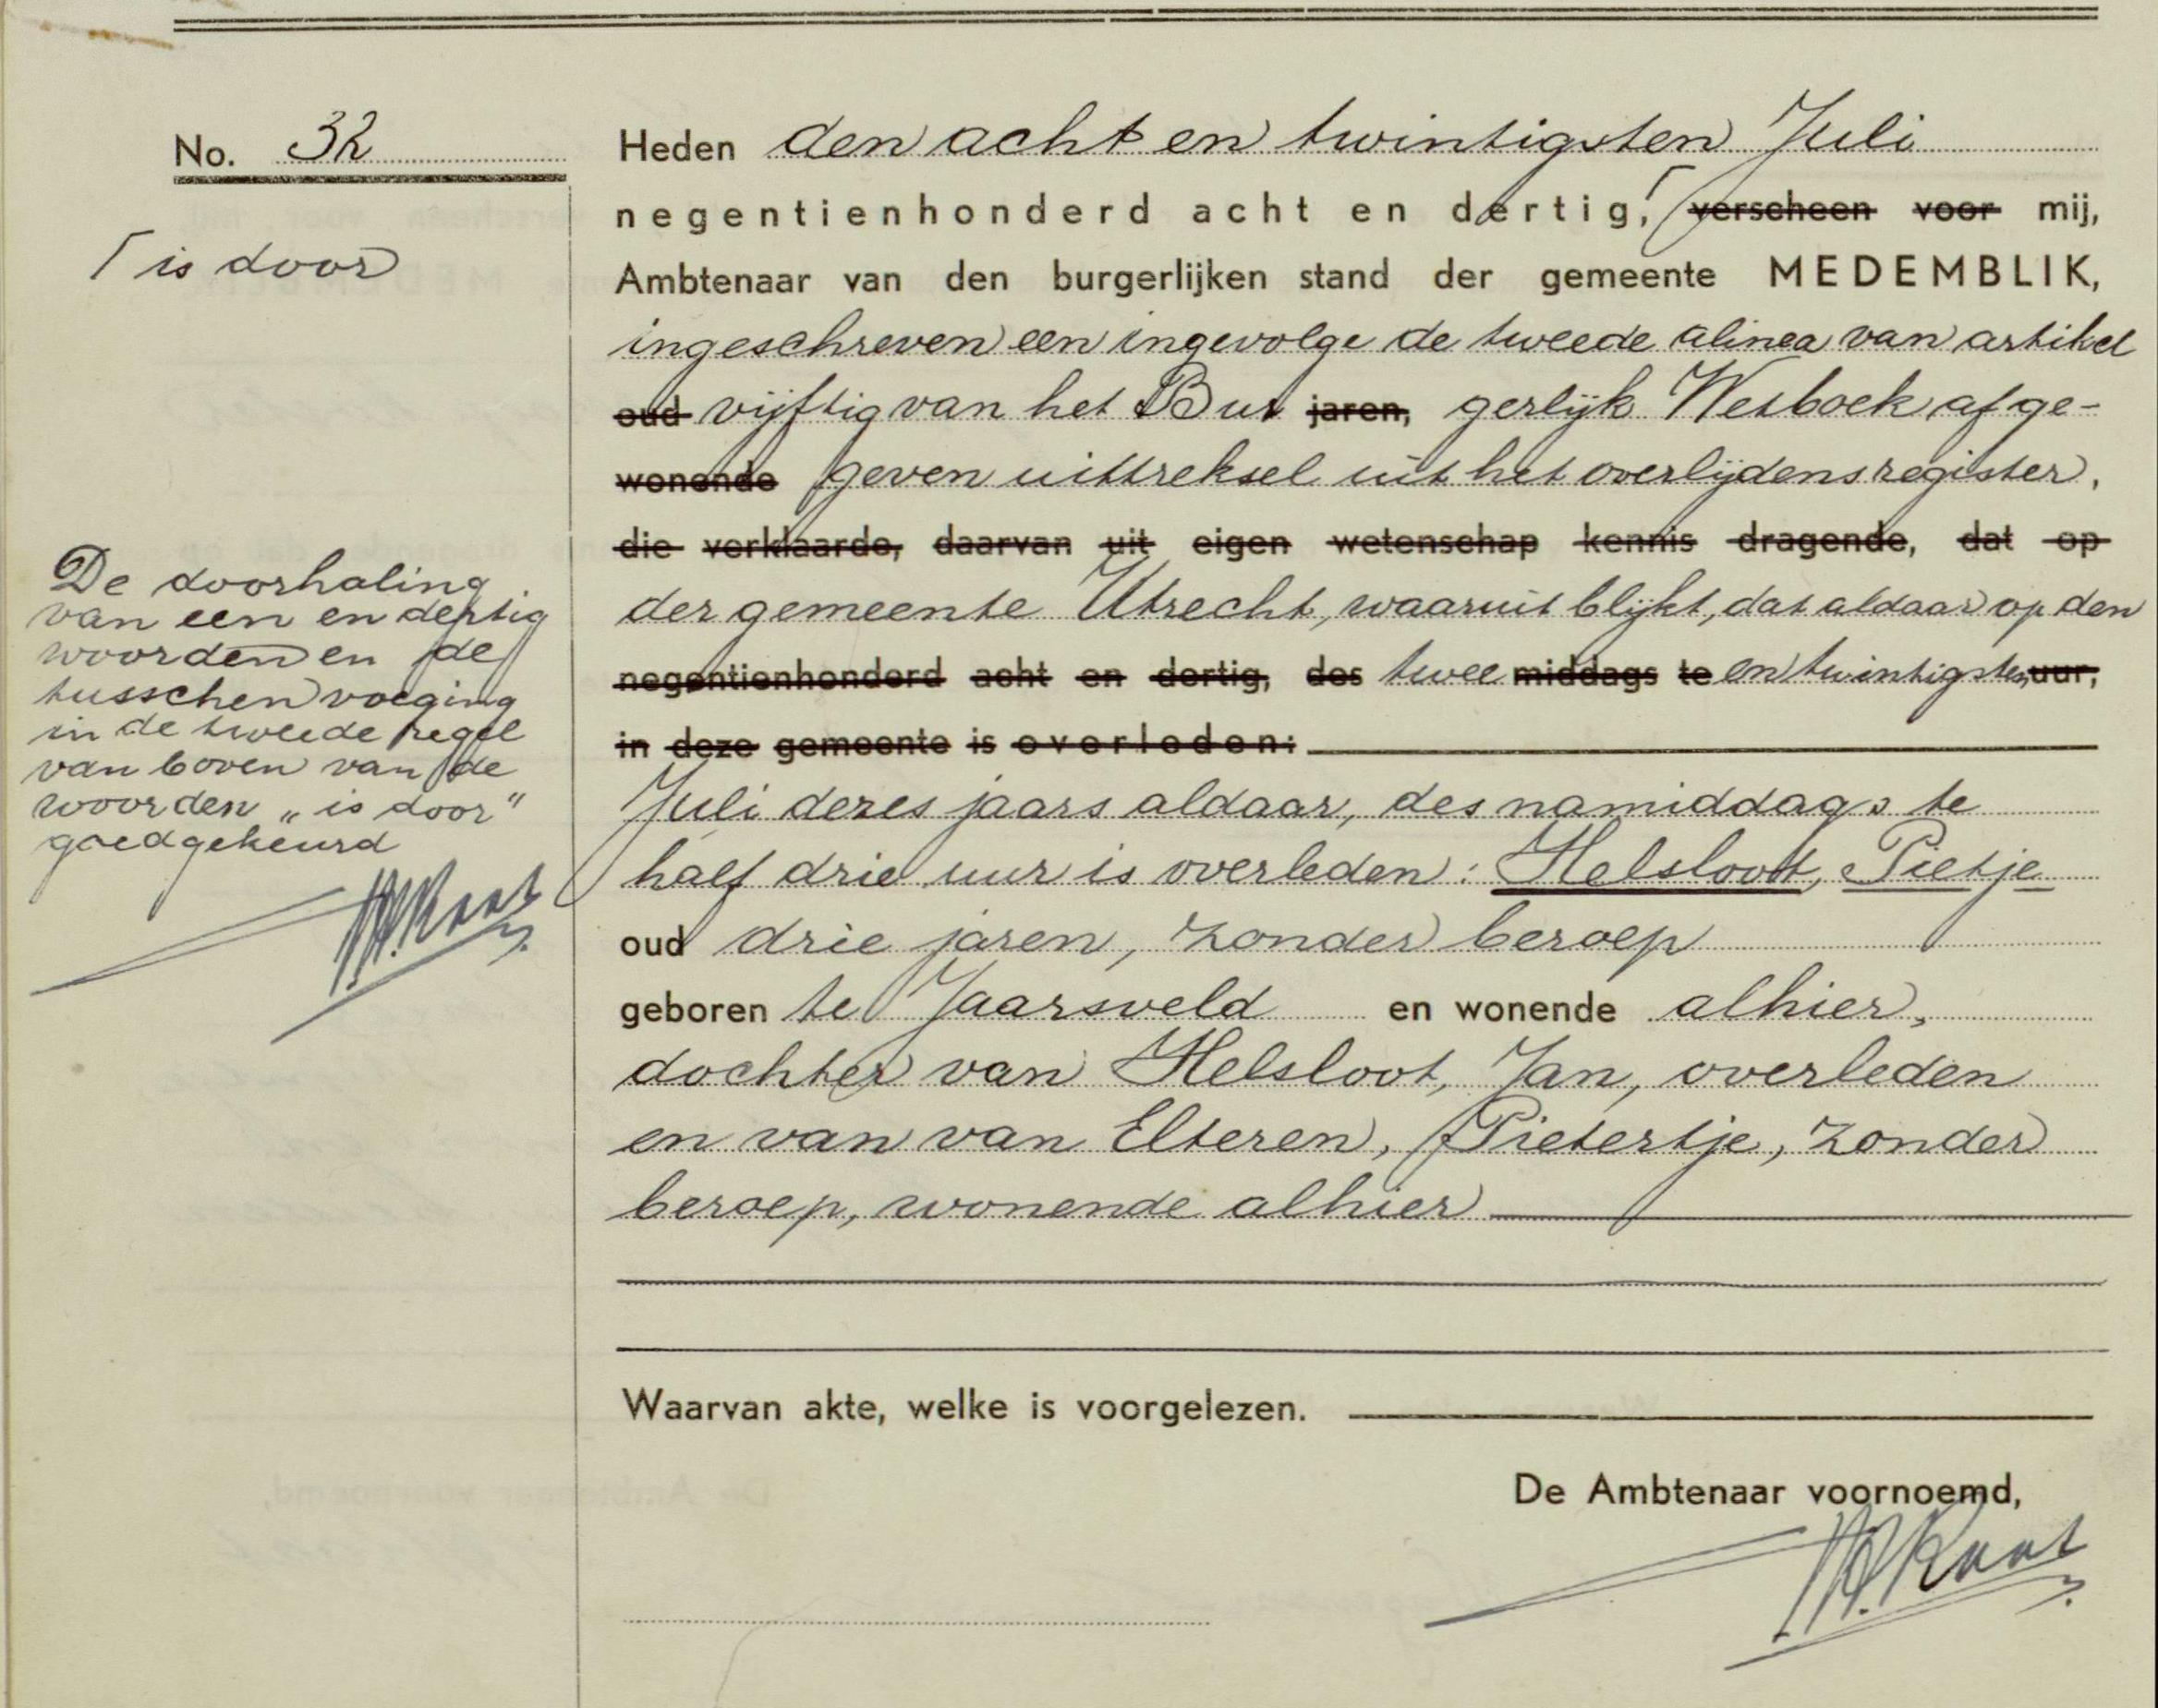 No. 32
Heden den acht en twintigsten Juli
negentienhonderd acht en dertig, ⌈ verscheen voor mij,
⌈ is door
Ambtenaar van den burgerlijken stand der gemeente MEDEMBLIK,
ingeschreven een ingevolge de tweede alinea van artikel
oud vijftig van het Bur jaren, gerlijk Wetboek afge-
wonende geven uittreksel uit het overlijdensregister,
die verklaarde, daarvan uit eigen wetenschap kennis dragende, dat op
der gemeente Utrecht, waaruit blijkt, dat aldaar op den
negentienhonderd acht en dertig, des twee middags te en twintigsten uur,
in deze gemeente is overleden:
De doorhaling
van een en dertig
woorden en de
tusschenvoeging
in de tweede regel
van boven van de
woorden „is door"
goedgekeurd
Juli dezes jaars aldaar, des namiddags te
half drie uur is overleden: Helsloot, Pietje
oud drie jaren, zonder beroep
geboren te Jaarsveld en wonende alhier,
dochter van Helsloot, Jan, overleden
en van van Elteren, Pietertje, zonder
beroep, wonende alhier
Waarvan akte, welke is voorgelezen.
De Ambtenaar voornoemd,